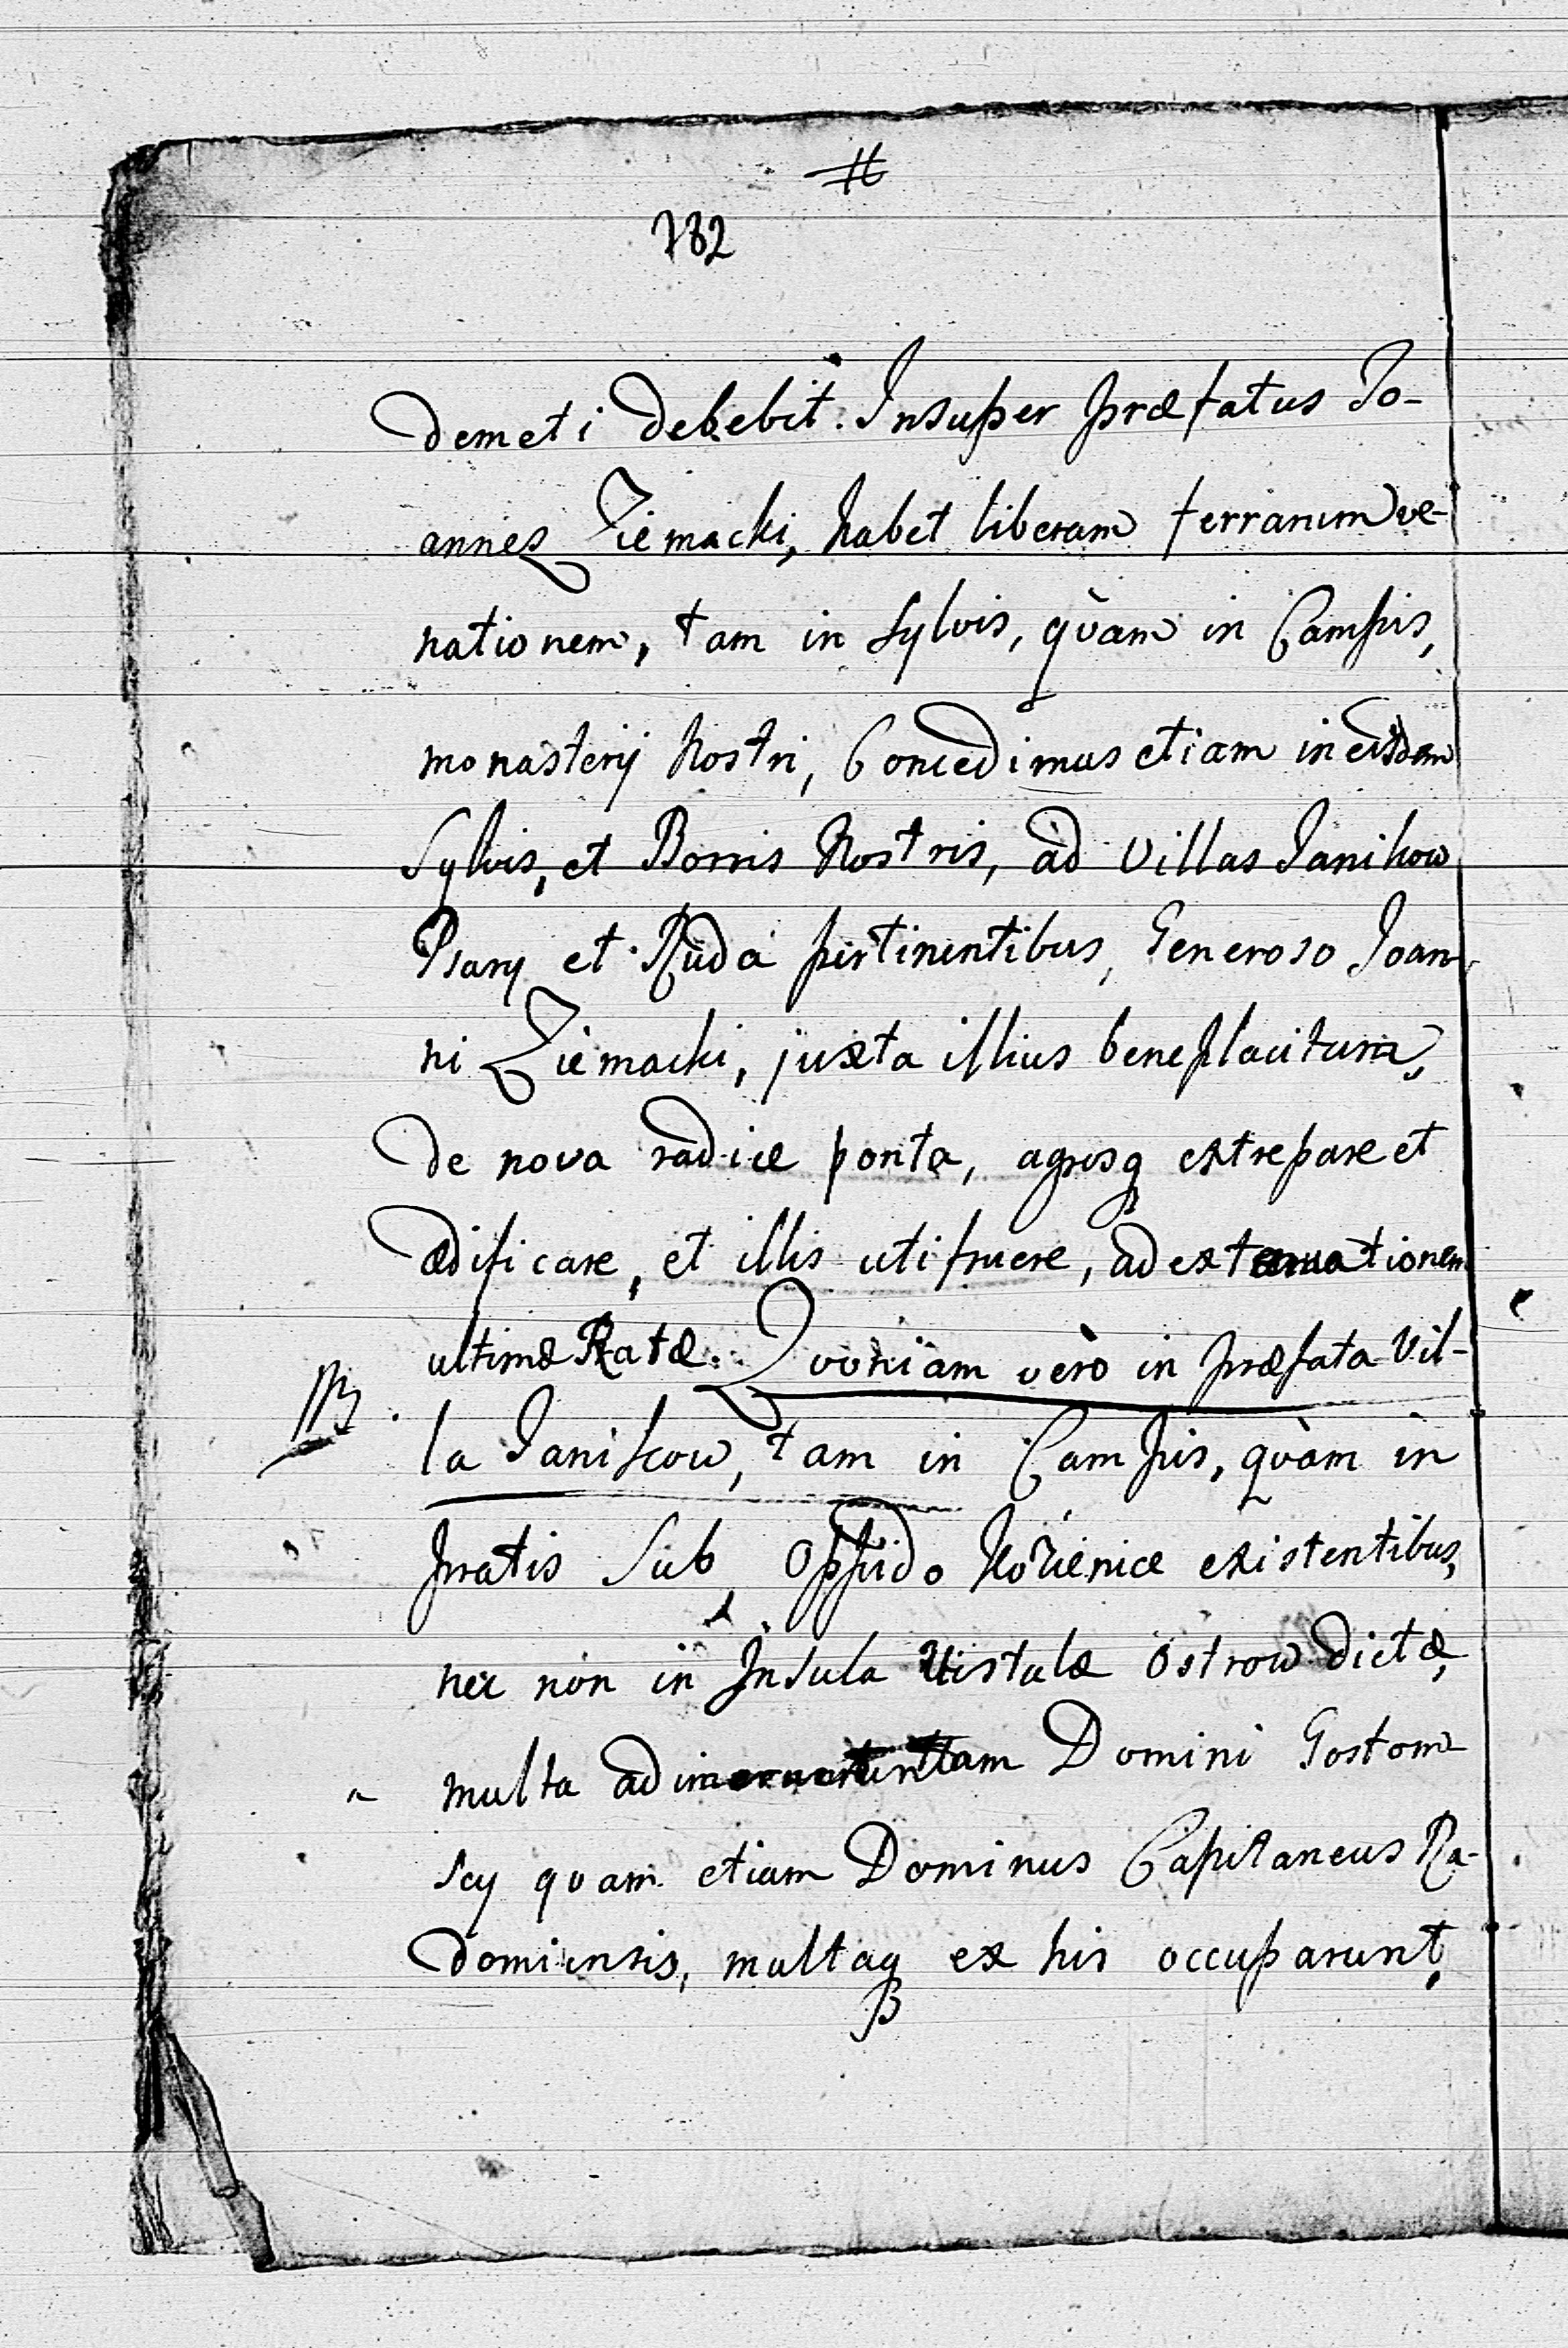 782
demeti debebit. Insuper præfatus Jo-
annes Ziemacki, habet liberam ferrarum ve-
nationem, tam in Sylvis, quàm in Campis,
monasterij Nostri, Concedimus etiam in eisdem
Sylvis, et Borris Nostris, ad Villas Janikow
Psary et Ruda pertinentibus, Generoso Joan-
ni Ziemacki, juxta illius beneplacitum,
de nova radice ponta, agrosq extrepare et
ædificare, et illis uti fruere, ad extenuationem
ultimæ Ratæ. Quoniam vero in præfata Vil-
NB la Janikow, tam in Campis, quàm in
pratis sub Oppido Kozienice existentibus,
nec non in Insula Vistulæ Ostrow dictæ,
multa tam Domini Gostom-
scy quam etiam Dominus Capitaneus Ra-
domiensis, multaq ex his occuparunt,